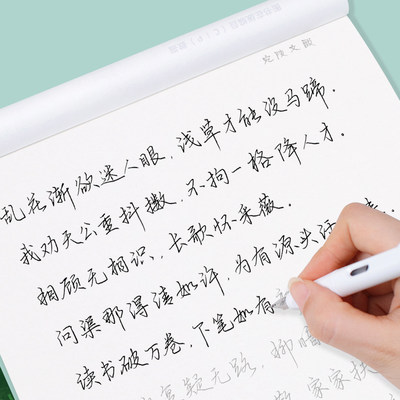 乱花渐欲迷人眼,浅草才能没马蹄.
我劝天公重抖擞,不拘一格降人才.
相顾无相识,长歌怀采薇.
问渠那得清如许,为有源头活
读书破万卷,下笔如有
复疑无路,柳暗
家家扶